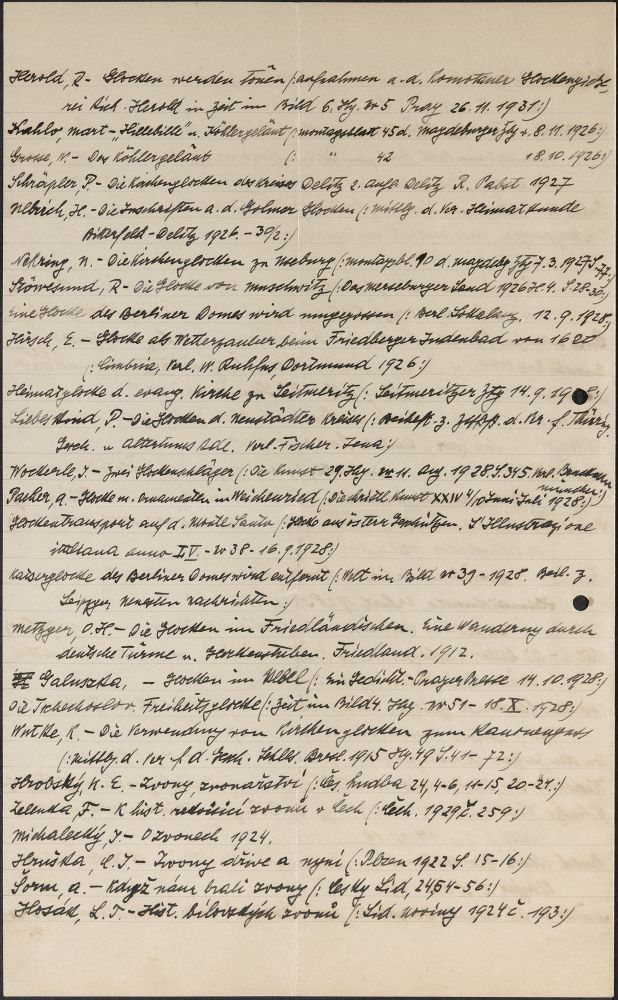 Herold, R - Glocken werden tönen (: aufnahmen a. d. Komotauer Glockengieße-
rei Rich. Herold in Zeit im Bild 6. Jhg. № 5 Prag 26. 11. 1931 :)
Kahlo, Mart - "Hillebille" u. Köhlergeläut (: Montagsblatt 45 d. Magdeburger Ztg v. 8. 11. 1926 :)
Grosse, W. - Das Köhlergeläut (: " 42 18. 10. 1926 :)
Schräpler, P. - Die Kirchenglocken des Kreises Delitz 2. Aufl. Delitz R. Pabst 1927
Ulbrich, H. - Die Inschriften a. d. Golmer Glocken (: Mittlg. d. Ver. Heimatkunde
Bitterfeld - Delitz 1926. - 39/2 :)
Nehring, N. - Die Kirchenglocken zu (: Montagsbl. 10 d. Magdebg Ztg 7. 3. 1927 S. 77 :)
R - Die Glocke von Muschwitz (: Das Merseburger Land 1926 H. 4. S. 28-30 :)
Eine Glocke des Berliner Domes wird umgegossen (: Berl. Lokalanz. 12. 9. 1928 :)
Hirsch, E. - Glocke als Wetterzauber beim Friedberger Judenbad von
(: Cimbria, Verl. W. Ruhfus, Dortmund 1926 :)
Heimatglocke d. evang. Kirche zu Leitmeritz (: Leitmeritzer Ztg 14. 9. :)
Liebeskind, P. - Die Glocken d. Neustädter Kreises (: Beiheft z. Ztschft. d. Vr. f. Thüring.
Gesch. u Altertumskde. Verl. Fischer. Jena :)
Wockerle, J - Zwei Glockenschläger (: Die Kunst 29. Jhg. № 11. Aug. 1928. S. 345. Verl. Bruckmann
München :)
Pacher, A. - Glocke m. Ornamenten in Weichenried (: Die christl. Kunst XXIV Juni Juli 1928 :)
Glockentransport auf d. Monte Santo (: Glocke aus österr Geschützen. L'Illustrazione
italiana anno IV. - № 38 - 16. 9. 1928 :)
Kaiserglocke des Berliner Domes wird entfernt (: Welt im Bild № 39 - 1928. Beil. z.
Leipzger neuesten Nachrichten :)
Metzger, O. H. - Die Glocken im Friedländischen. Eine Wanderung durch
deutsche Türme u. Glockenstuben. Friedland. 1912.
Galuszka, - Glocken im Nebel (: Ein Gedicht. - Prager Presse 14. 10. 1928 :)
Die Tschechoslov. Freiheitsglocke (: Zeit im Bild 4. Jhg. № 51 - 18. X. 1928 :)
Wutke, K. - Die Verwendung von Kirchenglocken zum Kanonenguss
(: Mittlg d. Ver. f. d. Gesch. Schles. Bresl. 1915 Hg. 49 S. 41 - 72 :)
Hrobský, K. E. - Zvony, zvonařství (: Čes. hudba 24, 4-6, 11-15, 20-24 :)
Zelenka, F. - K hist. zvonů v Čech (: Čech. 1929 č. 259 :)
Michalecký, J - O zvonech 1924.
Hruška, C. J. - Zvony dříve a nyní (: Plzen 1922 S. 15-16 :)
Šorm, A. - Když nám brali zvony (: Český Lid, 24,54-56 :)
Hosák, L. T. - Hist. bílovských zvonů (: Lid. noviny 1924 č. 193 :)